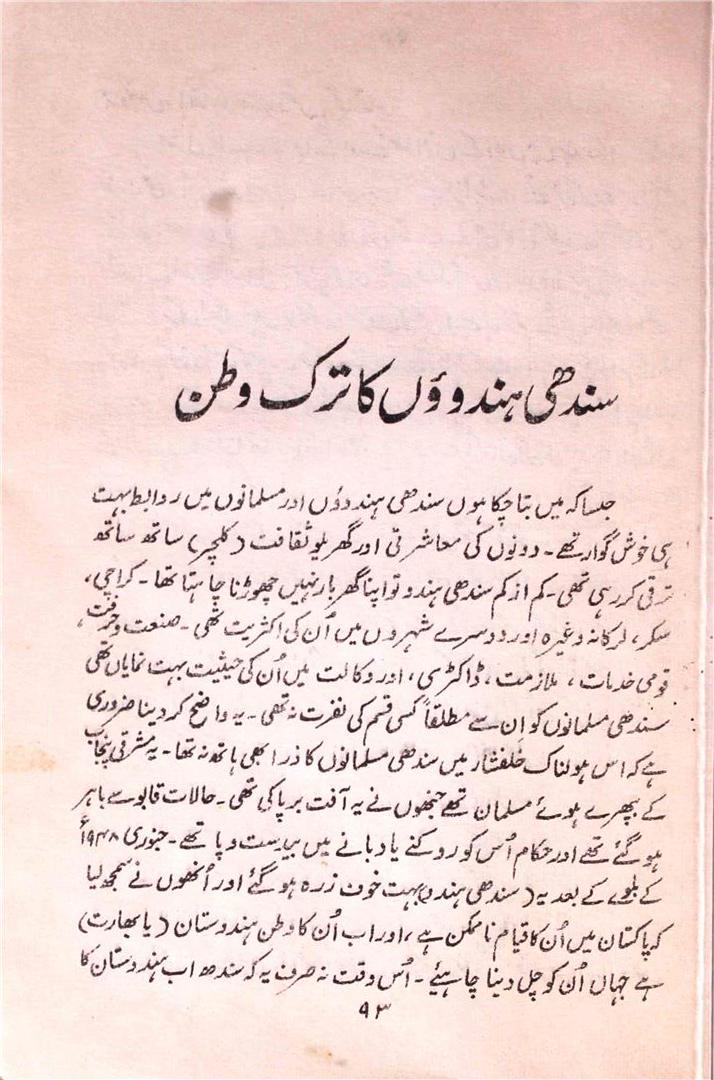 سندھی ہندوؤں کا ترک وطن
جیسا کہ میں بتا چکا ہوں سندھی ہندوؤں اور مسلمانوں میں روابط بہت
ہی خوش گوار تھے۔ دونوں کی معاشرتی اور گھریلو ثقافت (کلچر) ساتھ ساتھ
ترقی کر رہی تھی۔ کم از کم سندھی ہندو تو اپنا گھر بار نہیں چھوڑنا چاہتا تھا۔ کراچی،
سکر، لرکانہ وغیرہ اور دوسرے شہروں میں اُن کی اکثریت تھی۔ صنعت و حرفت،
قومی خدمات، ملازمت، ڈاکٹری، اور وکالت میں اُن کی حیثیت بہت نمایاں تھی
سندھی مسلمانوں کو ان سے مطلقاً کسی قسم کی نفرت نہ تھی۔ یہ واضح کر دینا ضروری
ہے کہ اس ہولناک خلفشار میں سندھی مسلمانوں کا ذرا بھی ہاتھ نہ تھا۔ یہ مشرقی پنجاب
کے بپھرے ہوئے مسلمان تھے جنھوں نے یہ آفت برپا کی تھی۔ حالات قابو سے باہر
ہو گئے تھے اور حکام اُس کو روکنے یا دبانے میں بیدست و پا تھے۔ جنوری ۱۹۴۸ء
کے بلوے کے بعد یہ (سندھی ہندو) بہت خوف زدہ ہو گئے اور اُنھوں نے سمجھ لیا
کہ پاکستان میں اُن کا قیام ناممکن ہے، اور اب اُن کا وطن ہندوستان (یا بھارت)
ہے جہاں اُن کو چل دینا چاہیئے۔ اُس وقت نہ صرف یہ کہ سندھ اب ہندوستان کا
۹۳